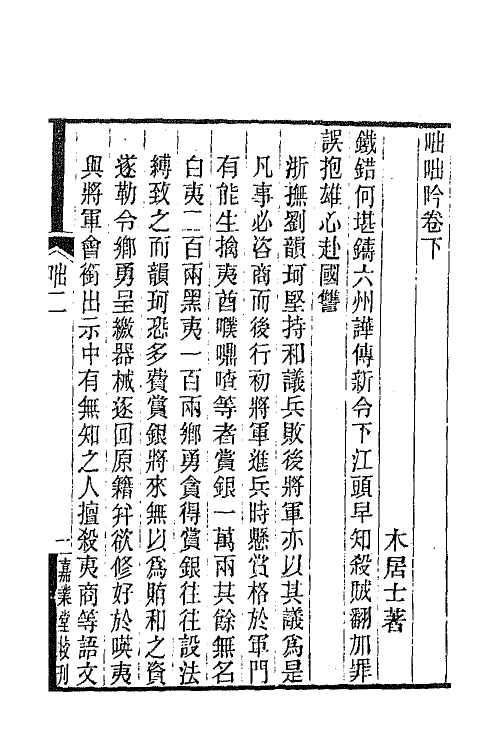 咄咄吟卷下
木居士著
鐵錯何堪鑄六州譁傳新令下江頭早知殺賊翻加罪
誤抱雄心赴國讐
浙撫劉韻珂堅持和議兵敗後將軍亦以其議爲是
凡事必咨商而後行初將軍進兵時懸賞格於軍門
有能生擒夷酋㗲㗣喳等者賞銀一萬兩其餘無名
白夷二百兩黑夷一百兩鄉勇貪得賞銀往往設法
縛致之而韻珂恐多費賞銀將來無以爲賄和之資
遂勒令鄉勇呈繳器械逐回原籍幷欲修好於㗸夷
與將軍會銜出示中有無知之人擅殺夷商等語文
咄二
一
嘉業堂校刊